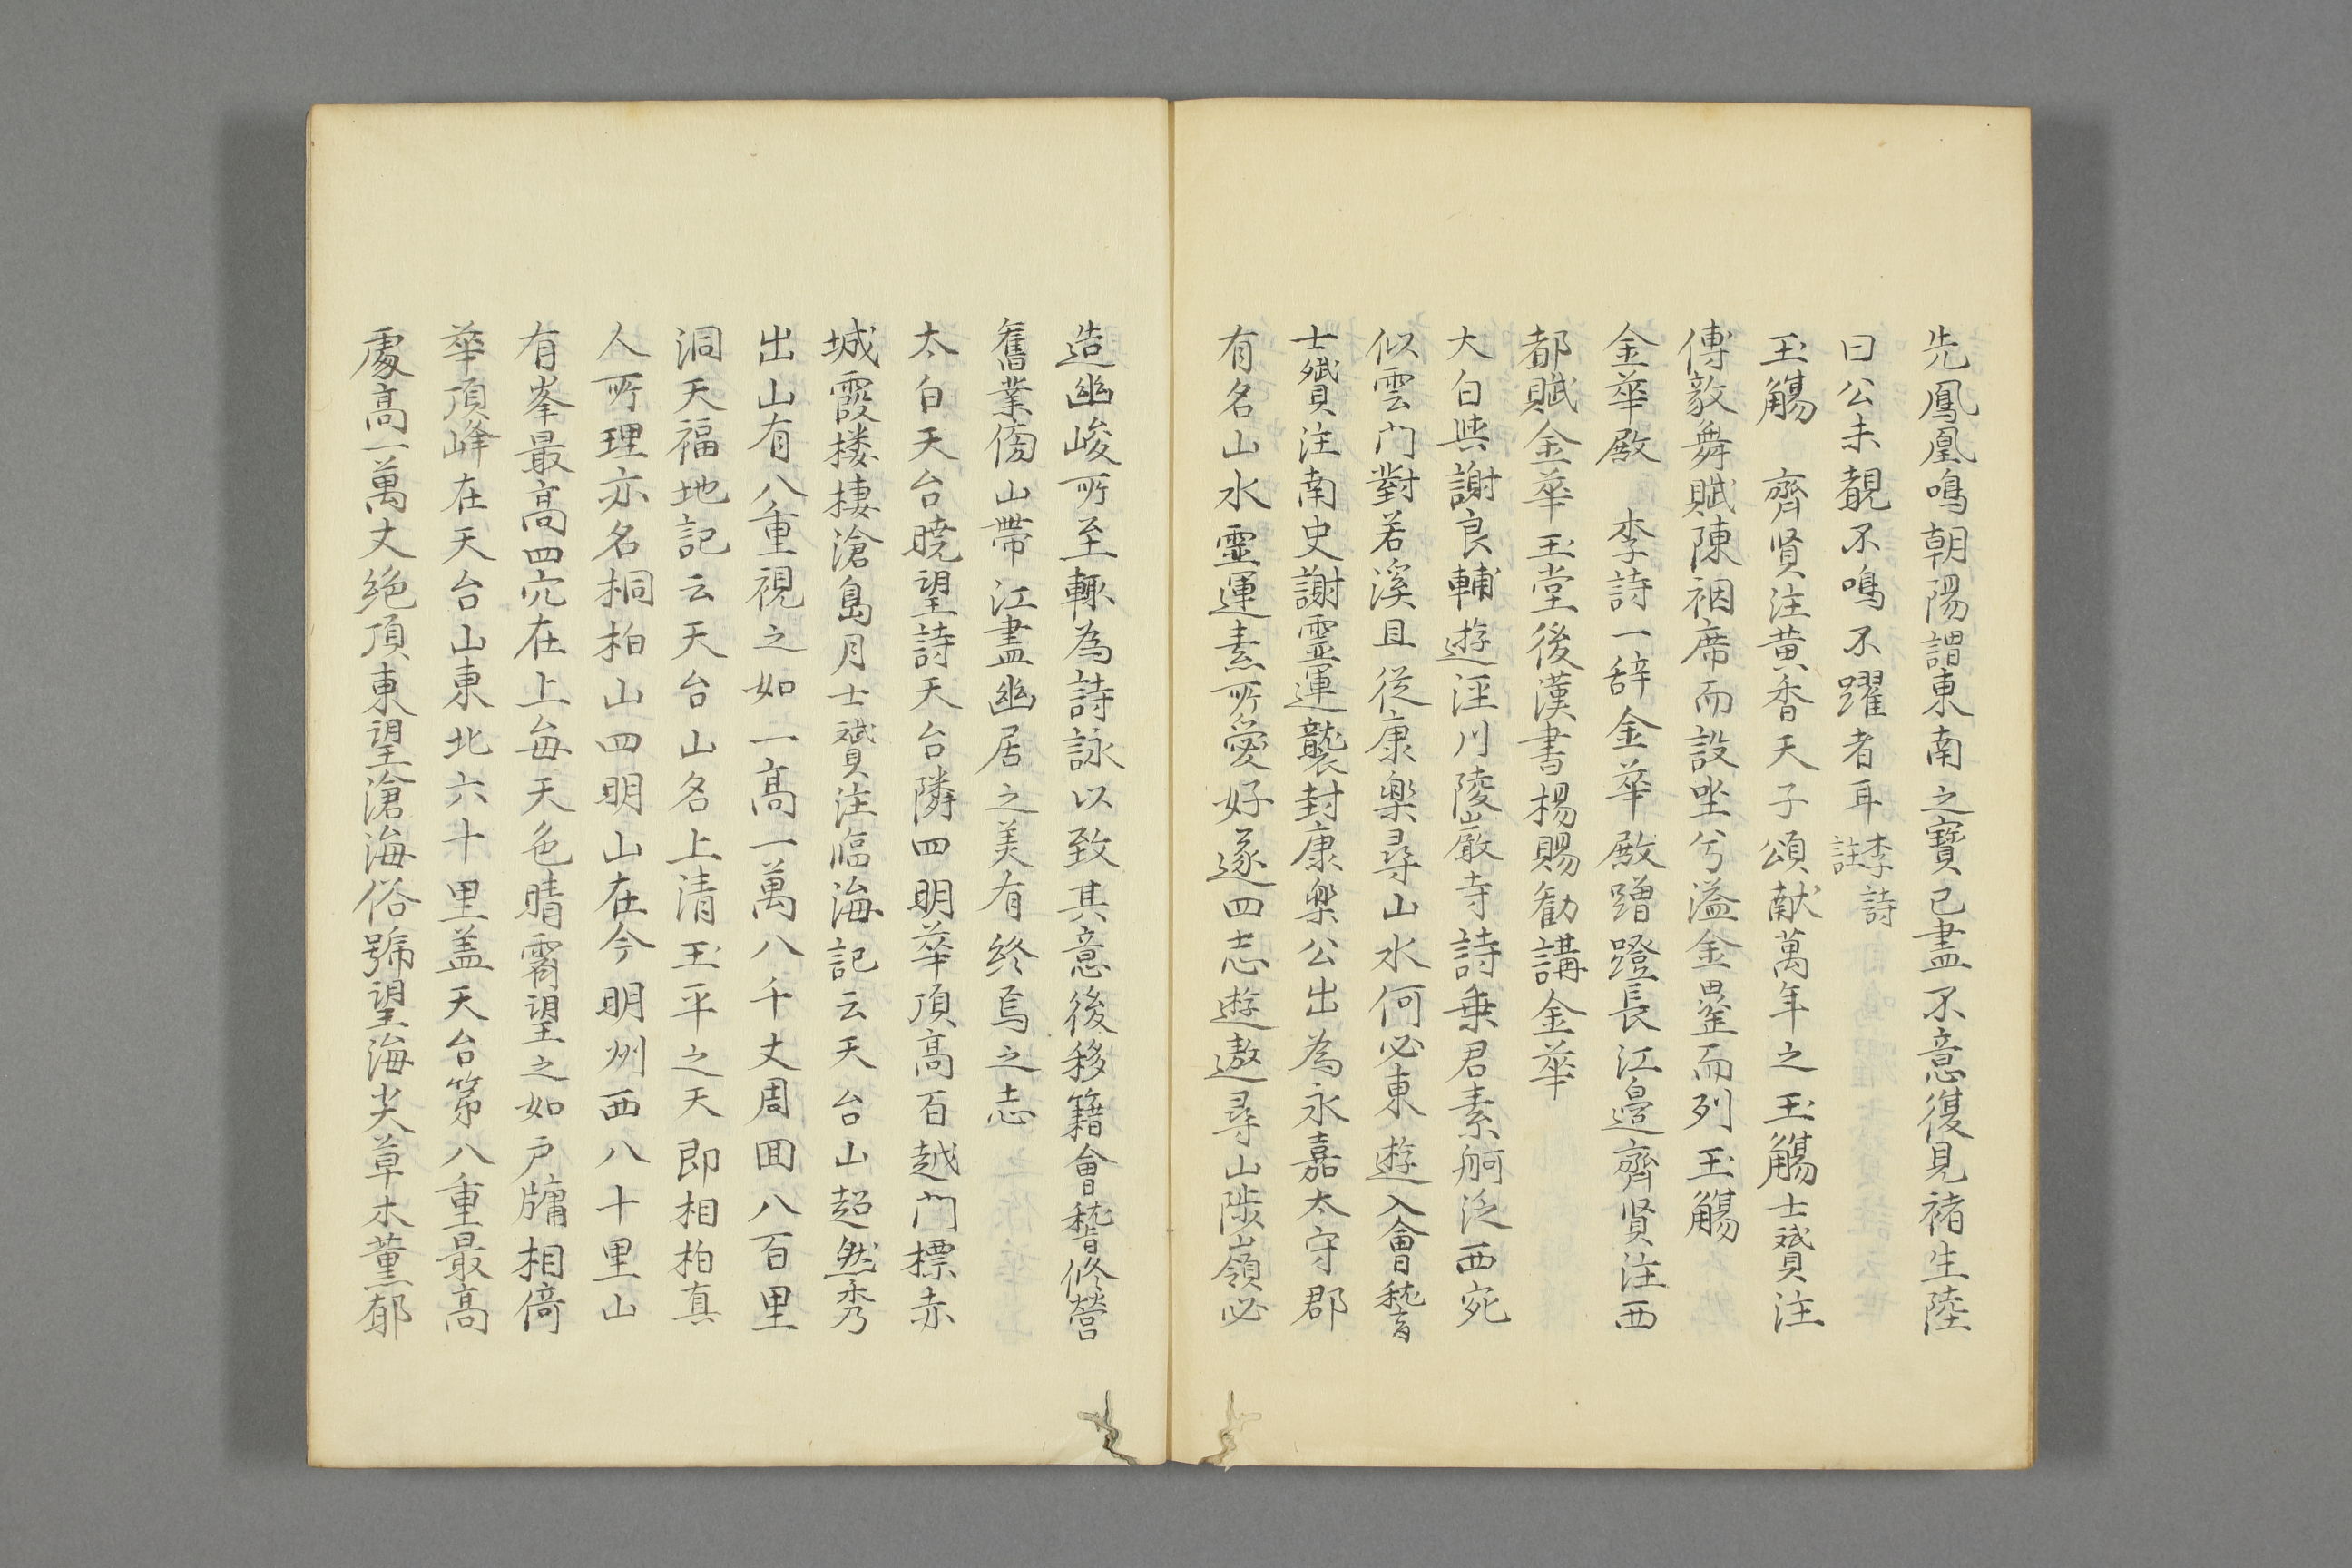 先鳳凰鳴朝陽謂東南之寶已盡不意復見褚生陸
曰公未覩不鳴不躍者耳李詩註
玉觴　齊賢注黄香天子頌献萬年之玉觴士贇注
傅毅舞賦陳裀席而設坐兮溢金罍而列玉觴
金華殿　李詩一辞金華殿蹭蹬長江邉齊賢注西
都賦金華玉堂後漢書楊賜勧講金華
大白與謝良輔遊涇川陵巌寺詩乗君素舸泛西㝃
似雲门對若溪且従康楽尋山水何必東遊入會稽
士贇注南史謝霊運襲封康楽公出為永嘉太守郡
有名山水霊運素所愛好遂四志遊遨尋山陟嶺必
造幽峻所至輙為詩詠以致其意後移籍會稽修営
舊業傍山帶江盡幽居之美有終焉之志
太白天台暁望詩天台隣四明華頂高百越门標赤
城霞楼棲滄島月士贇注臨海記云天台山超然秀
出山有八重視之如一高一萬八千丈周囬八百里
洞天福地記云天台山名上清玉平之天即相柏真
人所理亦名桐柏山四明山在今明州西八十里山
有峯最高四穴在上毎天色晴霽望之如戸牗相倚
華頂峰在天台山東北六十里盖天台第八重最高
處高一萬丈絶頂東望滄海俗號望海尖草木薫郁